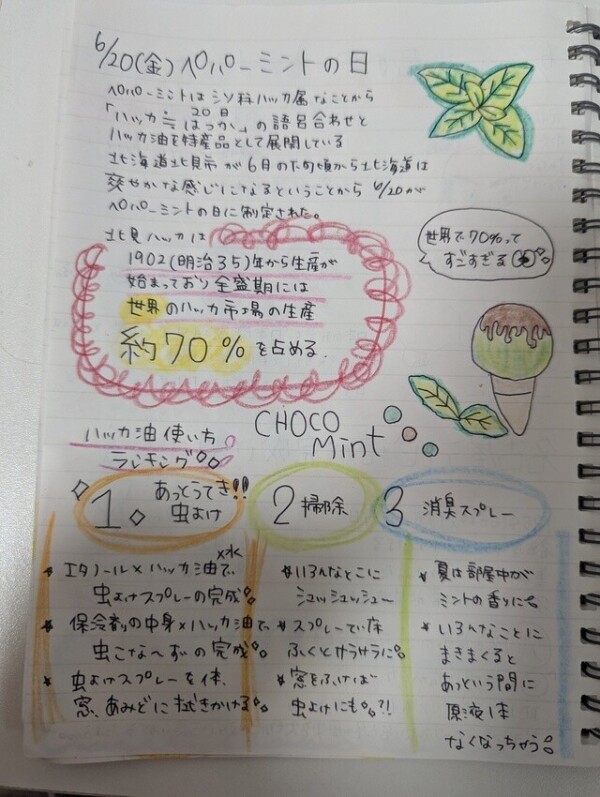 6/20(金)ペパーミントの日
ペパーミントはシソ科ハッカ属なことから
「ハッカ≒はっか」の語呂合わせと
20日
ハッカ油を特産品として展開している
北海道北見市が6月の下旬頃から北海道は
爽やかな感じになるということから6/20が
ペパーミントの日に制定された。
北見ハッカは
1902(明治35)年から生産が
始まっており全盛期には
世界のハッカ市場の生産
約70%を占める.
世界で70%って
すごすぎる
CHOCO
Mint
ハッカ油使い方
ランキング
1. あっとうてき!!
虫よけ
2 掃除
3 消臭スプレー
エタノール×ハッカ油で
×水
虫よけスプレーの完成
保冷剤の中身×ハッカ油で
虫こな〜ずの完成
虫よけスプレーを体、
窓、あみどに拭きかける
いろんなとこに
シュッシュッシュー
スプレーで床
ふくとサラサラに
窓をふけば
虫よけにも?!
夏は部屋中が
ミントの香りにも
いろんなことに
まきまくると
あっという間に
原液は
なくなっちゃう